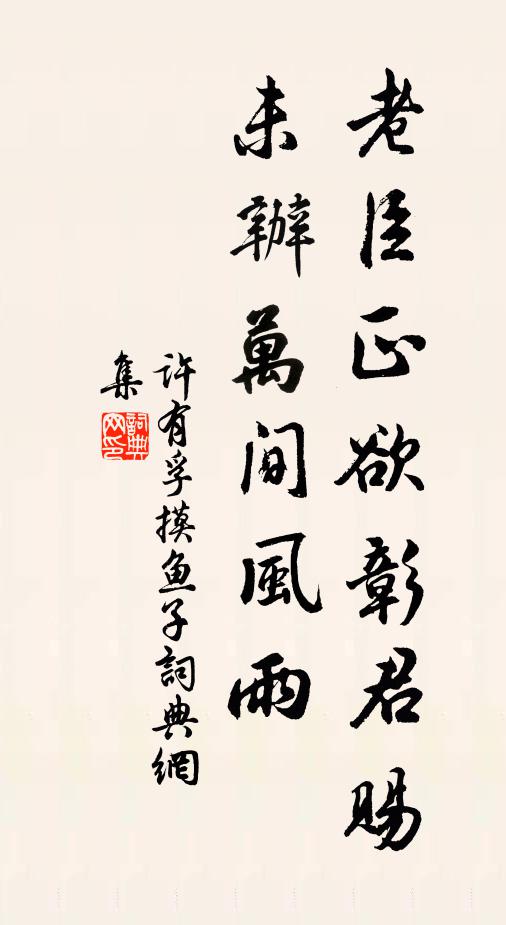 老臣正欲彰君賜
未辦萬間風雨
許有孚摸鱼子詞典網
集
詞典网印